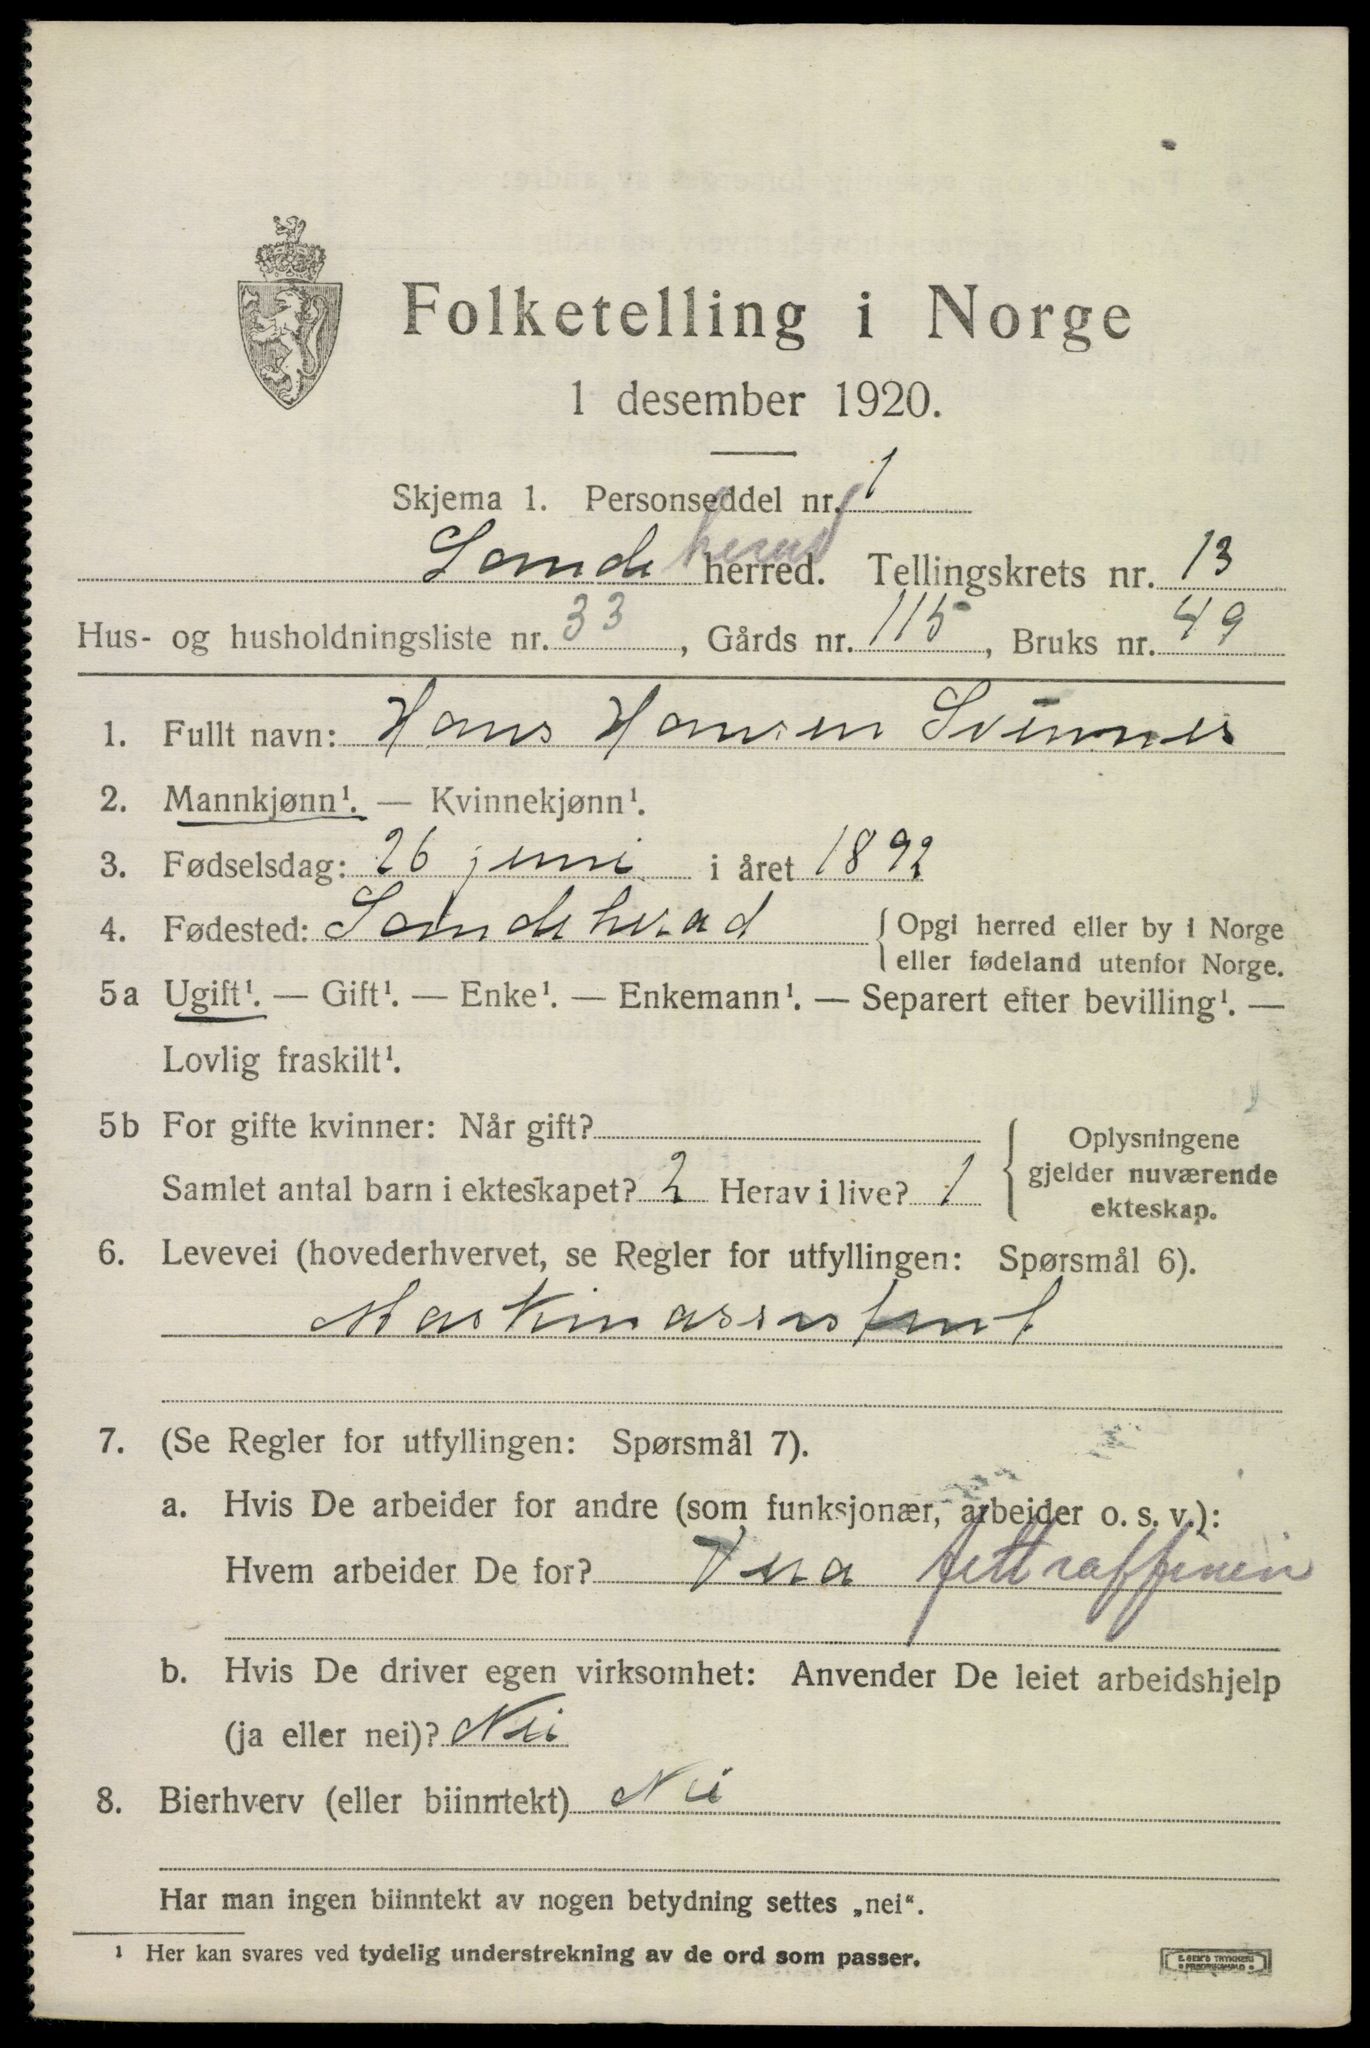 Folketelling i Norge
1 desember 1920.
Skjema 1. Personseddel nr. 1
Sande herad herred. Tellingskrets nr. 13
Hus- og husholdningsliste nr. 33, Gårds nr. 115, Bruks nr. 49
1. Fullt navn: Hans Hansen Svinnes
2. Mannkjønn¹. — Kvinnekjønn¹.
3. Fødselsdag: 26 juni i året 1892
4. Fødested: Sandeherad {Opgi herred eller by i Norge
eller fødeland utenfor Norge.
5a Ugift¹. — Gift¹. — Enke¹. — Enkemann¹. — Separert efter bevilling¹. —
Lovlig fraskilt¹.
5b For gifte kvinner: Når gift?
Samlet antal barn i ekteskapet? 2 Herav i live? 1
Oplysningene
gjelder nuværende
ekteskap.
6. Levevei (hovederhvervet, se Regler for utfyllingen: Spørsmål 6).
Maskinassistent
7. (Se Regler for utfyllingen: Spørsmål 7).
a. Hvis De arbeider for andre (som funksjonær, arbeider o. s. v.):
Hvem arbeider De for? Vera fettraffineri
b. Hvis De driver egen virksomhet: Anvender De leiet arbeidshjelp
(ja eller nei)? Nei
8. Bierhverv (eller biinntekt) Nei
Har man ingen biinntekt av nogen betydning settes „nei“.
¹ Her kan svares ved tydelig understrekning av de ord som passer.